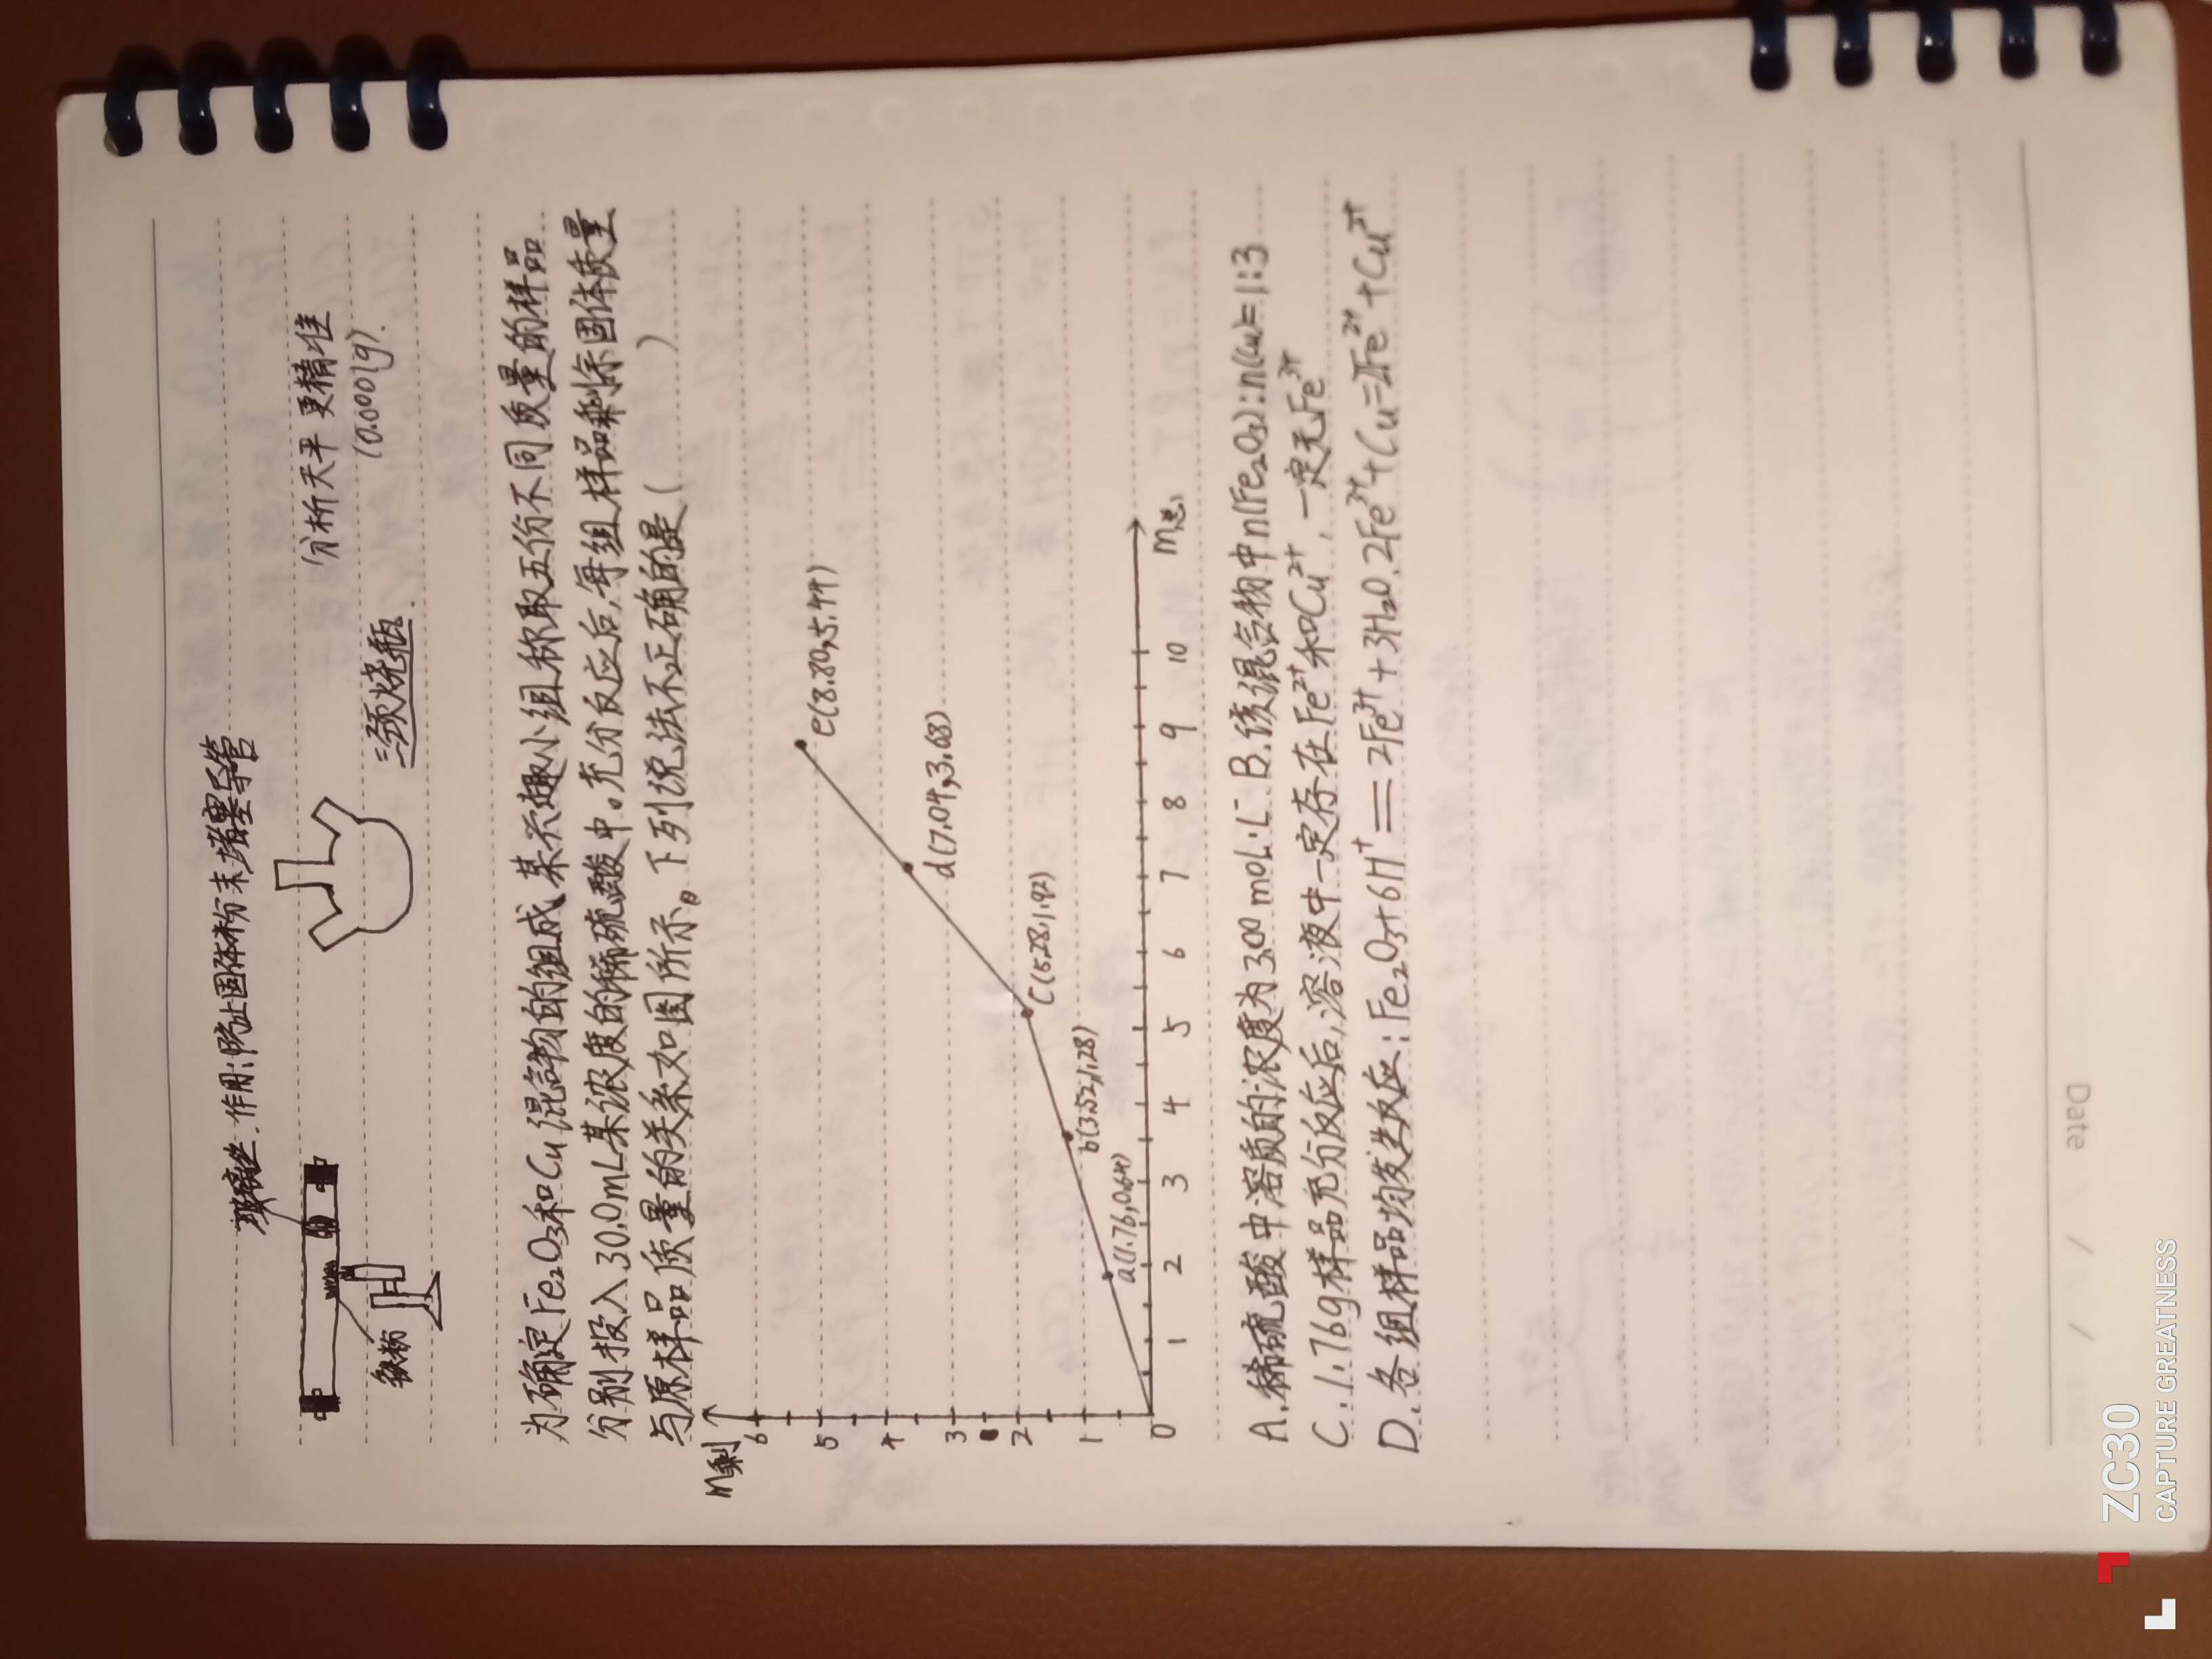 玻璃丝 作用:防止固体粉末堵塞导管
铁粉
三颈烧瓶
分析天平 更精准
(0.0001g).
为确定Fe₂O₃和Cu混合物的组成,某兴趣小组称取五份不同质量的样品
分别投入30.0mL某浓度的稀硫酸中。充分反应后,每组样品剩余固体质量
与原样品质量的关系如图所示。下列说法不正确的是( )
m剩
6
5
4
3
2
1
0
1 2 3 4 5 6 7 8 9 10
m总
a(1.76,0.64)
b(3.52,1.28)
C(5.28,1.92)
d(7.04,3.68)
e(8.80,5.44)
A.稀硫酸中溶质的浓度为3.00 moL·L⁻ B.该混合物中n(Fe₂O₃):n(Cu)=1:3
C.1.76g样品充分反应后,溶液中一定存在Fe²⁺和Cu²⁺,一定无Fe³⁺
D.各组样品均发生反应:Fe₂O₃+6H⁺=2Fe³⁺+3H₂O.2Fe³⁺+Cu=2Fe²⁺+Cu²⁺
Date / /
ZC30
CAPTURE GREATNESS